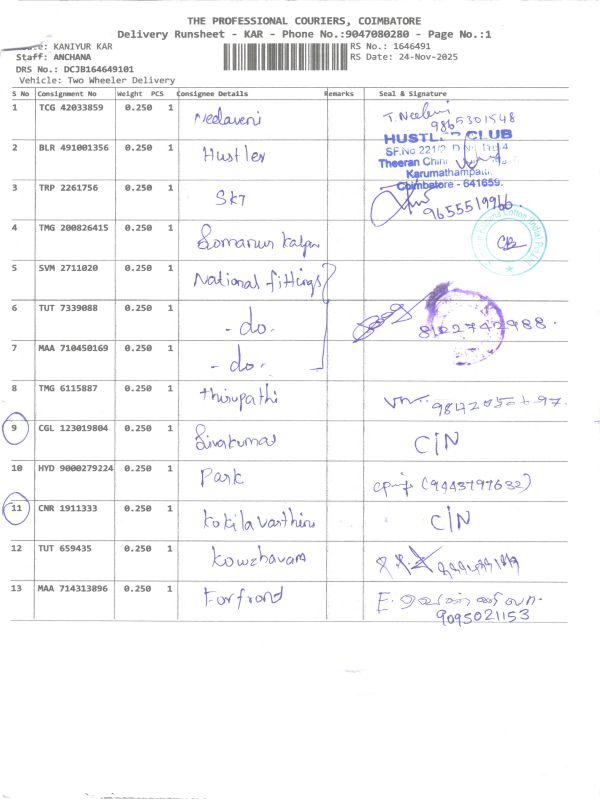 THE PROFESSIONAL COURIERS, COIMBATORE
Delivery Runsheet - KAR - Phone No.:9047080280 - Page No.:1
KANIYUR KAR
RS No.: 1646491
Staff: ANCHANA
RS Date: 24-Nov-2025
DRS No.: DCJB164649101
Vehicle: Two Wheeler Delivery
S No Consignment No Weight PCS Consignee Details Remarks Seal & Signature
1 TCG 42033859 0.250 1 Neelaveni T. Neelaveni
9865301548
2 BLR 491001356 0.250 1 Hustler HUSTLER CLUB
SF.No 221/2
Theeran Chinn
Karumathampatti
Coimbatore - 641659.
3 TRP 2261756 0.250 1 SKT
9655519966.
4 TMG 200826415 0.250 1 Somanur Kalpa
5 SVM 2711020 0.250 1 National fittings
6 TUT 7339088 0.250 1 - do. 8122742988.
7 MAA 710450169 0.250 1 - do.
8 TMG 6115887 0.250 1 thirupathi
9 CGL 123019804 0.250 1 Sivakumar C/N
10 HYD 9000279224 0.250 1 Park (9443797632)
11 CNR 1911333 0.250 1 kokilavarthini C/N
12 TUT 659435 0.250 1
13 MAA 714313896 0.250 1 Forfrond
9095021153